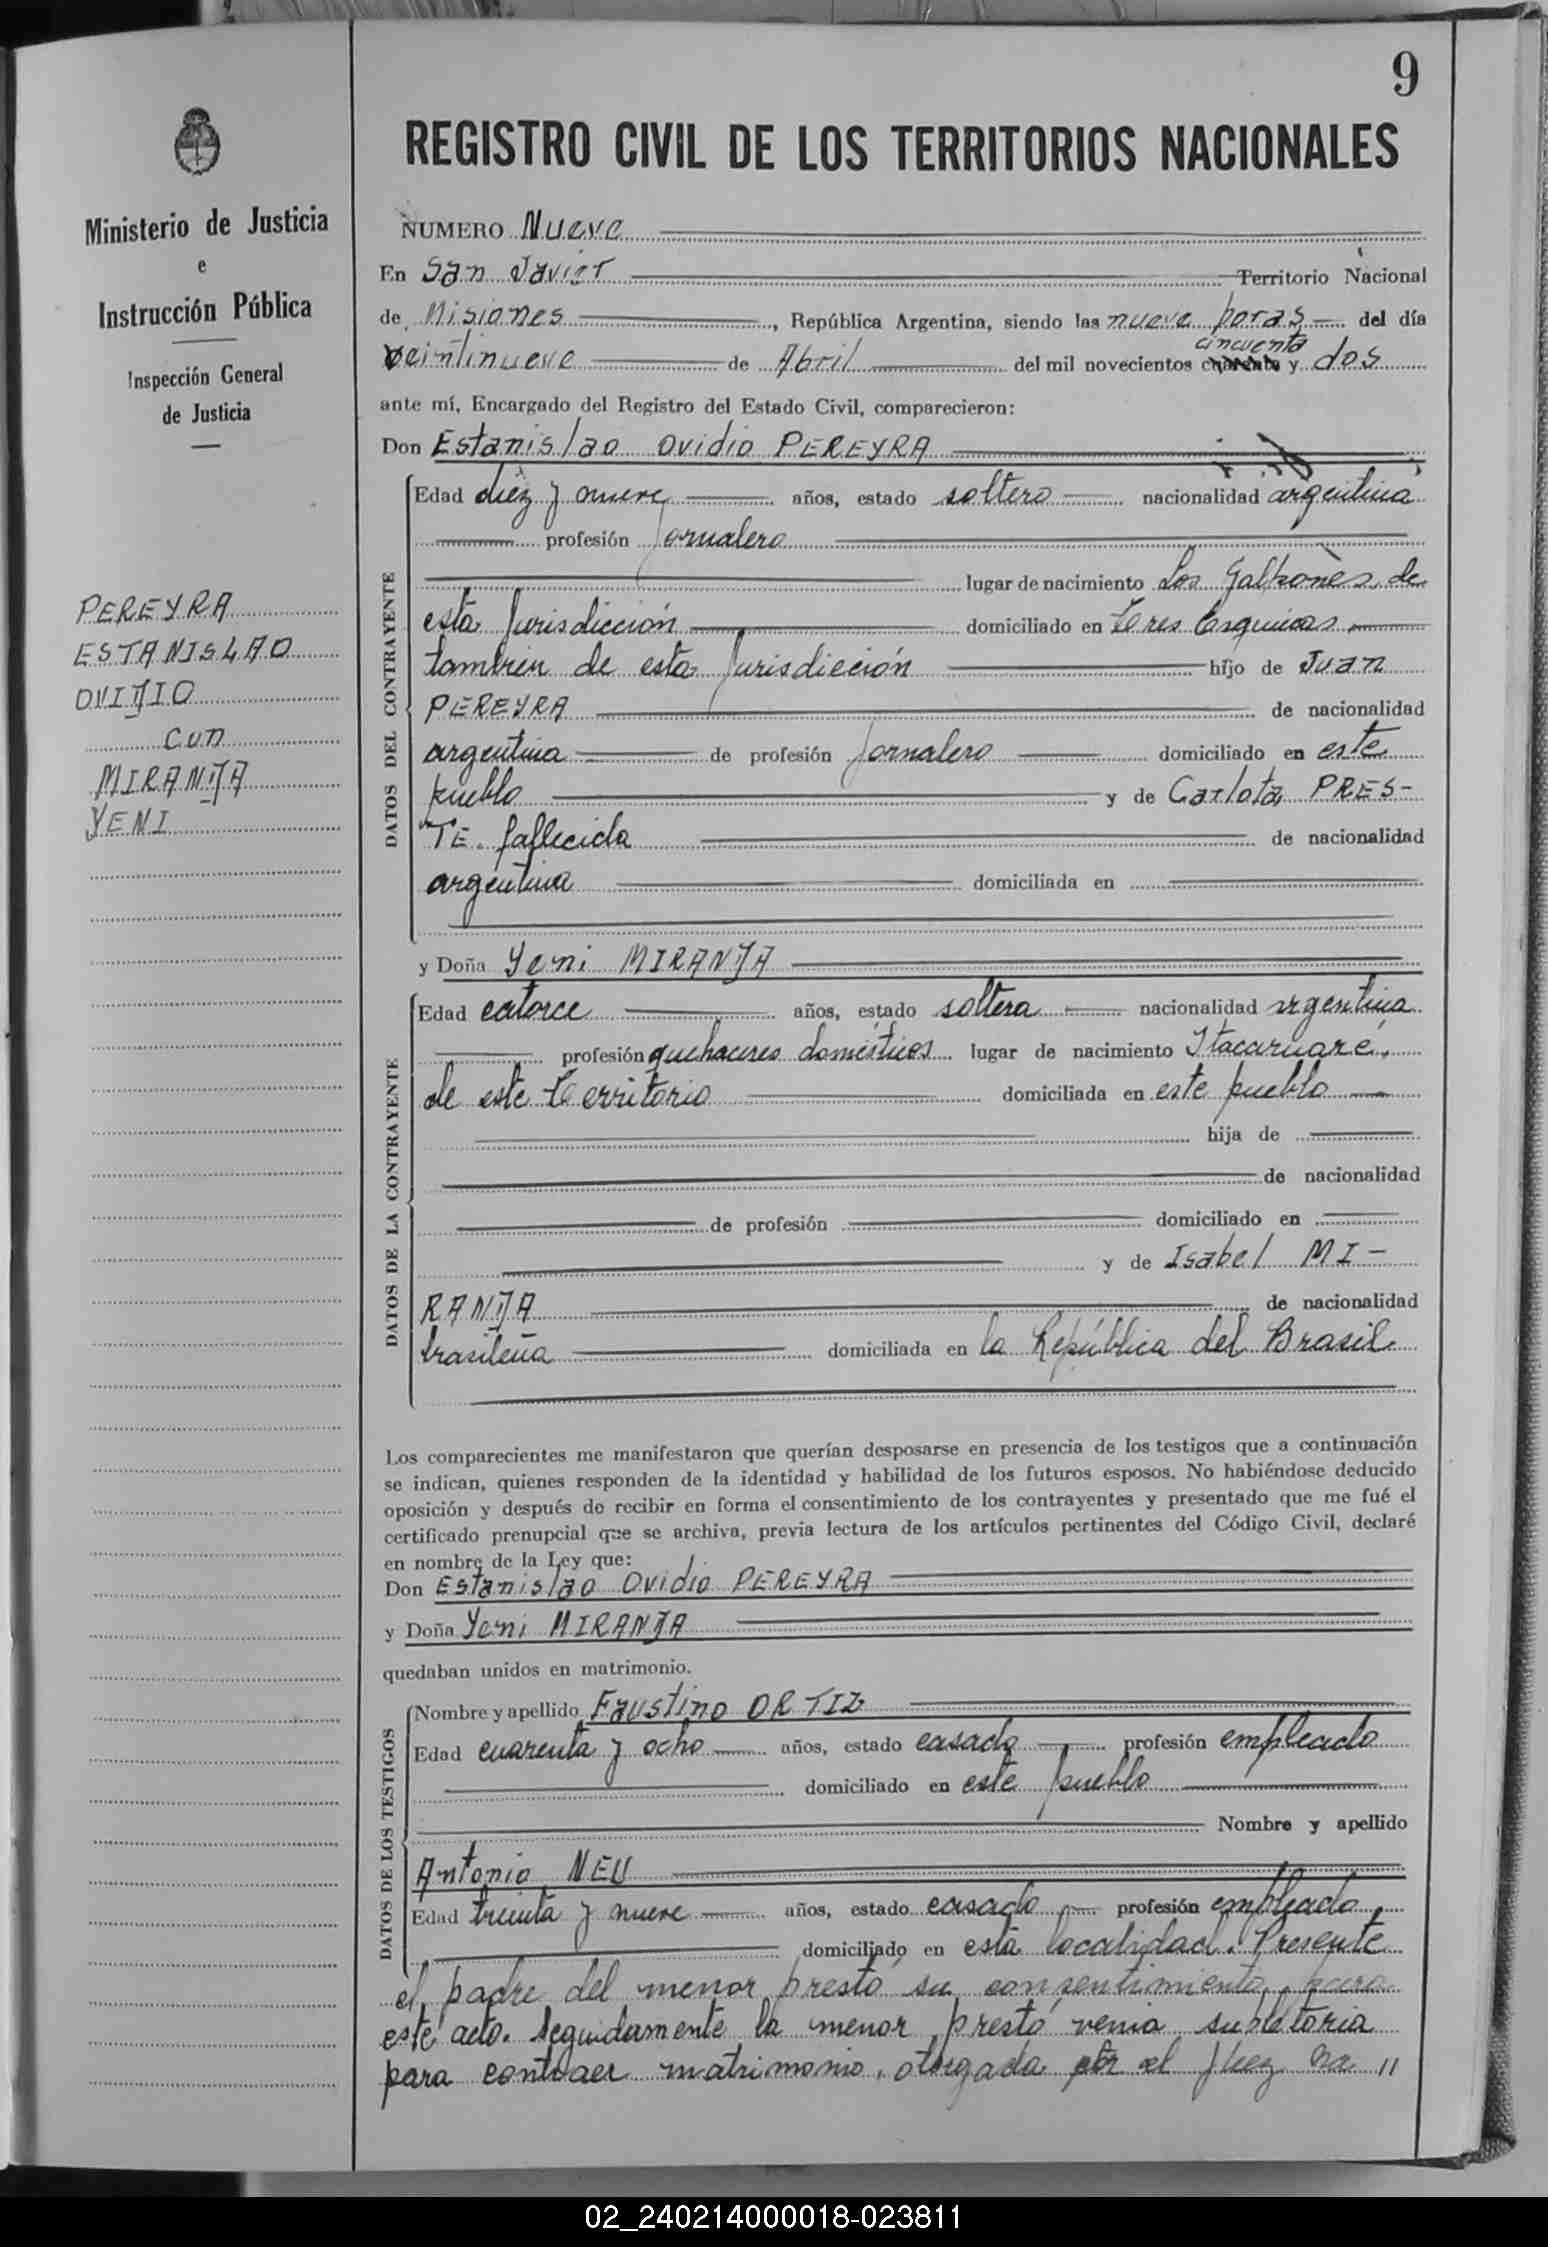 9
REGISTRO CIVIL DE LOS TERRITORIOS NACIONALES
Ministerio de Justicia
e
Instrucción Pública
Inspección General
de Justicia
PEREYRA
ESTANISLAO
OVIDIO
con
MIRANDA
YENI
NUMERO Nueve
En San Javier Territorio Nacional
de Misiones, República Argentina, siendo las nueve horas del día
cincuenta
veintinueve de Abril del mil novecientos cuarenta y dos
ante mí, Encargado del Registro del Estado Civil, comparecieron:
Don Estanislao Ovidio PEREYRA
DATOS DEL CONTRAYENTE
Edad diez y nueve años, estado soltero nacionalidad argentina
profesión Jornalero
lugar de nacimiento Los Galpones de
esta Jurisdicción domiciliado en Tres Esquinas
tambien de esta Jurisdicción hijo de Juan
PEREYRA de nacionalidad
argentina de profesión Jornalero domiciliado en este
pueblo y de Carlota PRES-
TE. fallecida de nacionalidad
argentina domiciliada en
y Doña Yeni MIRANDA
DATOS DE LA CONTRAYENTE
Edad catorce años, estado soltera nacionalidad argentina
profesión quehaceres domésticos lugar de nacimiento Itacaruaré,
de este Territorio domiciliada en este pueblo
hija de
de nacionalidad
de profesión domiciliado en
y de Isabel MI-
RANDA de nacionalidad
brasileña domiciliada en la República del Brasil
Los comparecientes me manifestaron que querían desposarse en presencia de los testigos que a continuación
se indican, quienes responden de la identidad y habilidad de los futuros esposos. No habiéndose deducido
oposición y después de recibir en forma el consentimiento de los contrayentes y presentado que me fué el
certificado prenupcial que se archiva, previa lectura de los artículos pertinentes del Código Civil, declaré
en nombre de la Ley que:
Don Estanislao Ovidio PEREYRA
y Doña Yeni MIRANDA
quedaban unidos en matrimonio.
DATOS DE LOS TESTIGOS
Nombre y apellido Faustino ORTIZ
Edad cuarenta y ocho años, estado casado profesión empleado
domiciliado en este pueblo
Nombre y apellido
Antonio NEU
Edad treinta y nueve años, estado casado profesión empleado
domiciliado en esta localidad. Presente
el padre del menor prestó su consentimiento para
este acto. Seguidamente la menor prestó venia supletoria
para contraer matrimonio, otorgada por el Juez Na "
02_240214000018-023811